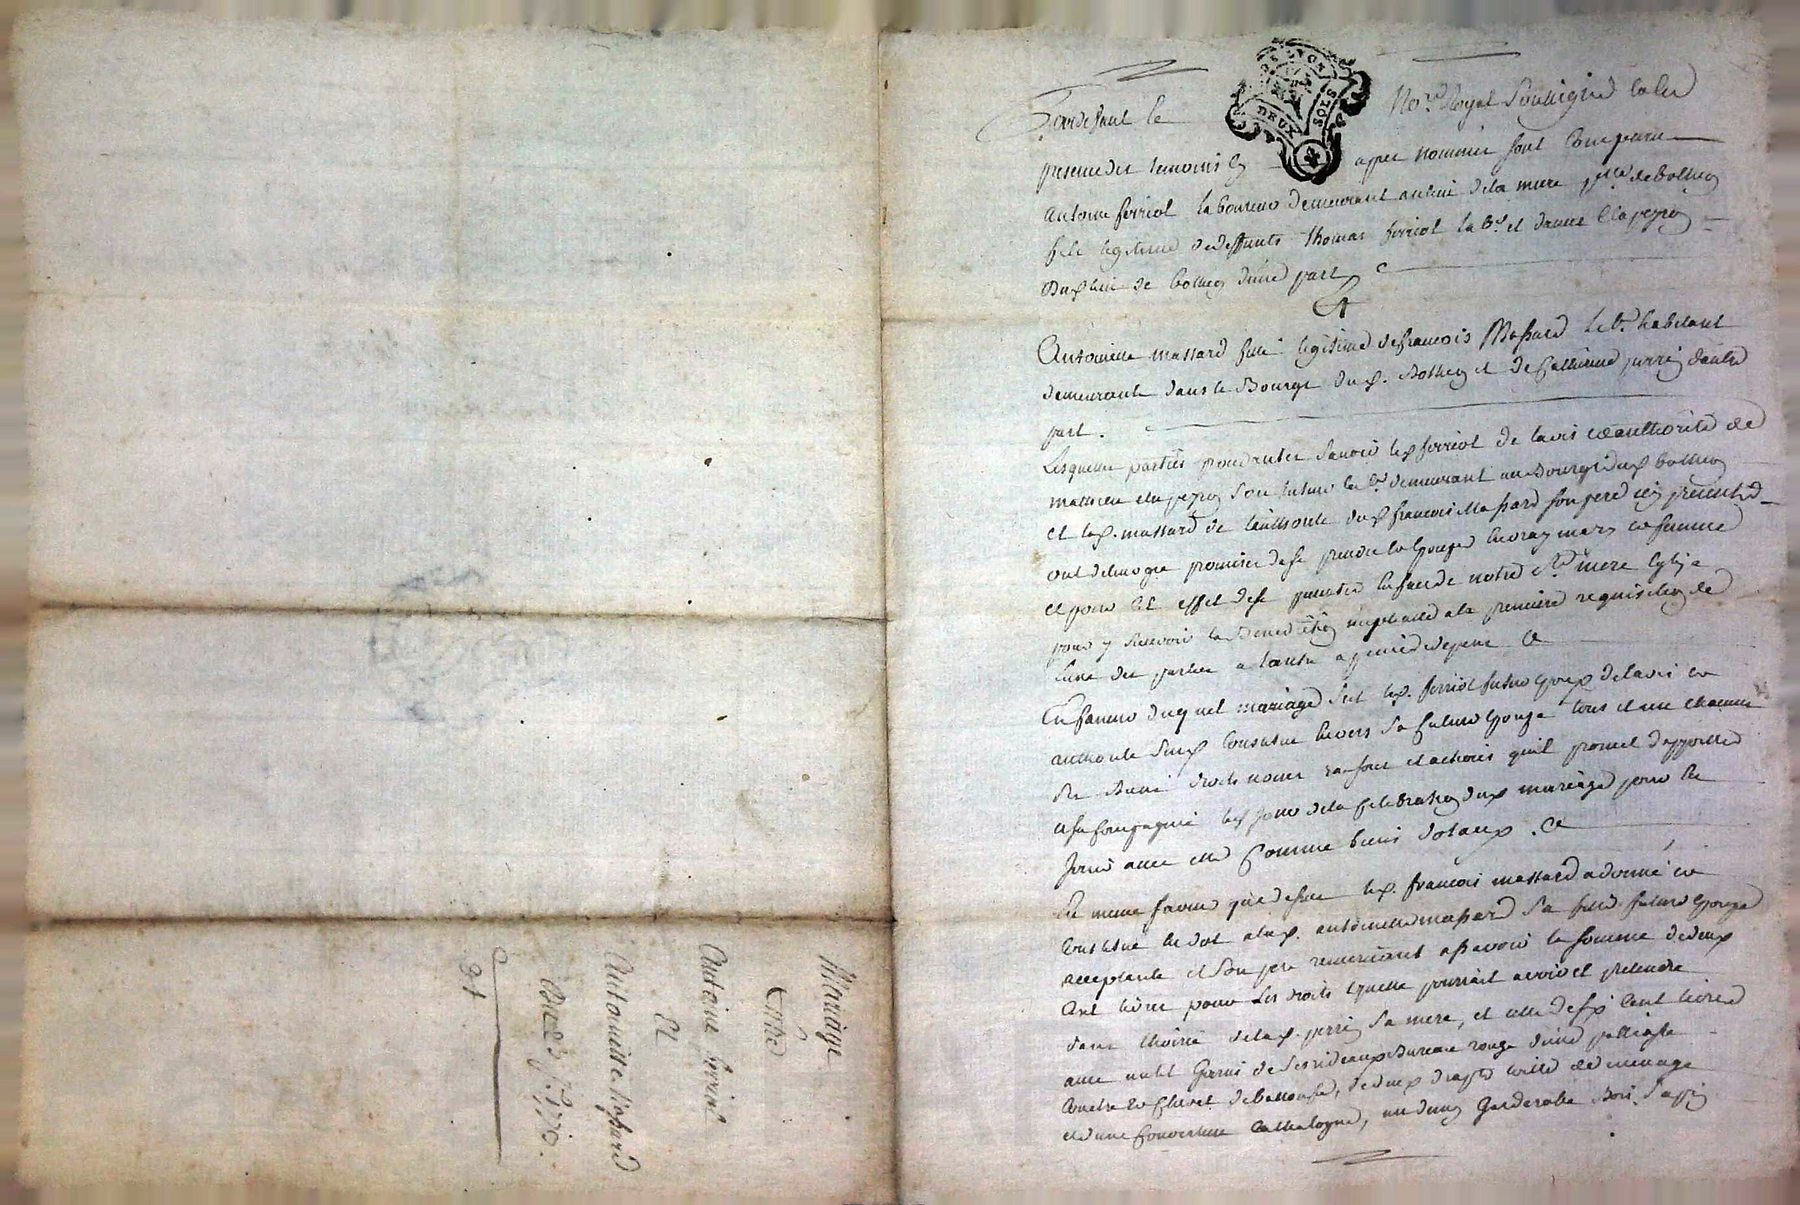 Mariage
Entre
Antoine ferriol
Et
Antoinette Maßard
Du 23 1770.
GE LYON
DEUX SOLS
Pardevant le No.re Royal Soussigné en la
presence des temoins apres nommés sont comparus
Antoine ferriol laboureur demeurant au lieu de la mure p.sse de bothéon
fils legitime de deffunts Thomas ferriol lab.r et d'anne Clapeyron
dud. lieu de bothéon d'une part
Et
Antoinette massard fille legitime de françois Maßard lab.r habitant
demeurante dans le Bourg dud. Bothéon et de Catherine perrin d'autre
part.
Lesquelles parties procedantes savoir led. ferriol de l'avis et authorité de
mathieu clapeyron son lab.r demeurant au Bourg dud. bothéon
et lad. massard de l'authorité dud. françois Maßard son pere icy present
ont de leur gré promis de se prendre en vray mary et femme
et pour cet effet de se presenter en face de notre S.te mere Eglise
pour y recevoir la Benediction nuptialle a la premiere requisition de
l'une des parties a l'autre a peine de depens
En faveur duquel mariage led. ferriol futur epoux de l'avis et
authorité susd. constitue envers sa future epouse tous et uns chacuns
ses Biens droits noms raisons et actions qu'il promet d'apporter
en sa compagnie le jour de la celebration dud. mariage pour en
jouir avec elle comme biens dotaux.
En meme faveur que dessus led. françois massard a donné et
constitué en dot a lad. antoinette maßard sa fille future epouse
acceptante et son pere remerciant a sçavoir la somme de deux
cent livres pour les droits qu'elle pourrait avoir et pretendre
dans l'hoirie de lad. perrin sa mere, et celle de six cent livres
avec un lit garni de ses rideaux Bureau rouge d'une paillasse
couetre et chevet de balouffe, de deux draps toille de menage
et d'une couverture Cathalogne, un garderobe Bois sappin